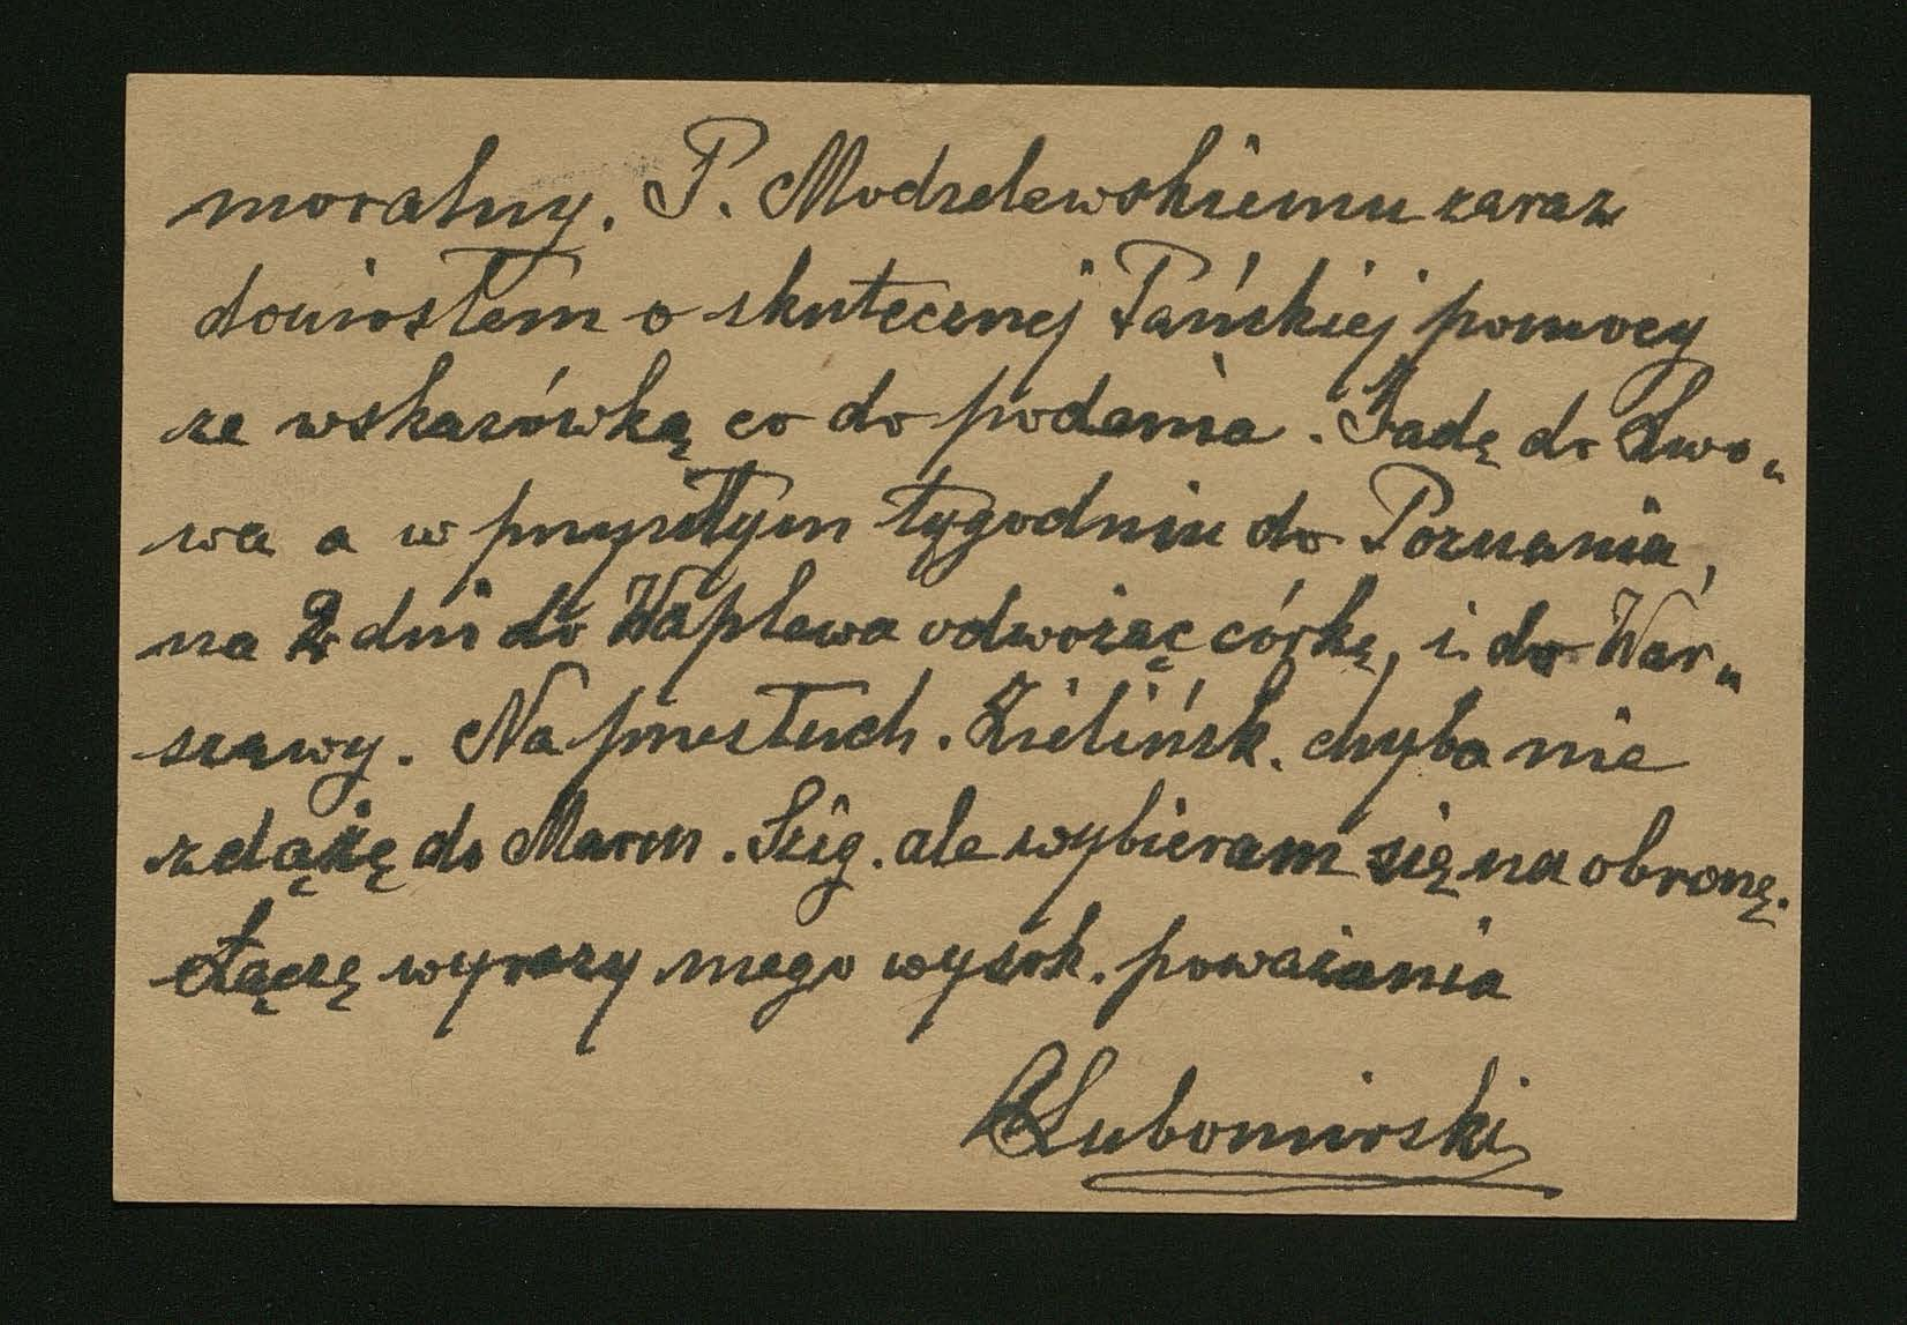 moralny. P. Modzelewskiemu zaraz
doniosłem o skutecznej Pańskiej pomocy
ze wskazówką co do podania. Jadę do Lwo„
wa a w przyszłym tygodniu do Poznania,
na 2 dni do Waplewa odwożąc córkę, i do War„
szawy. Na przesłuch. Zielińsk. chyba nie
zdążę do Marm. Szig. ale wybieram się na obronę.
Łączę wyrazy mego wysok. poważania
Lubomirski